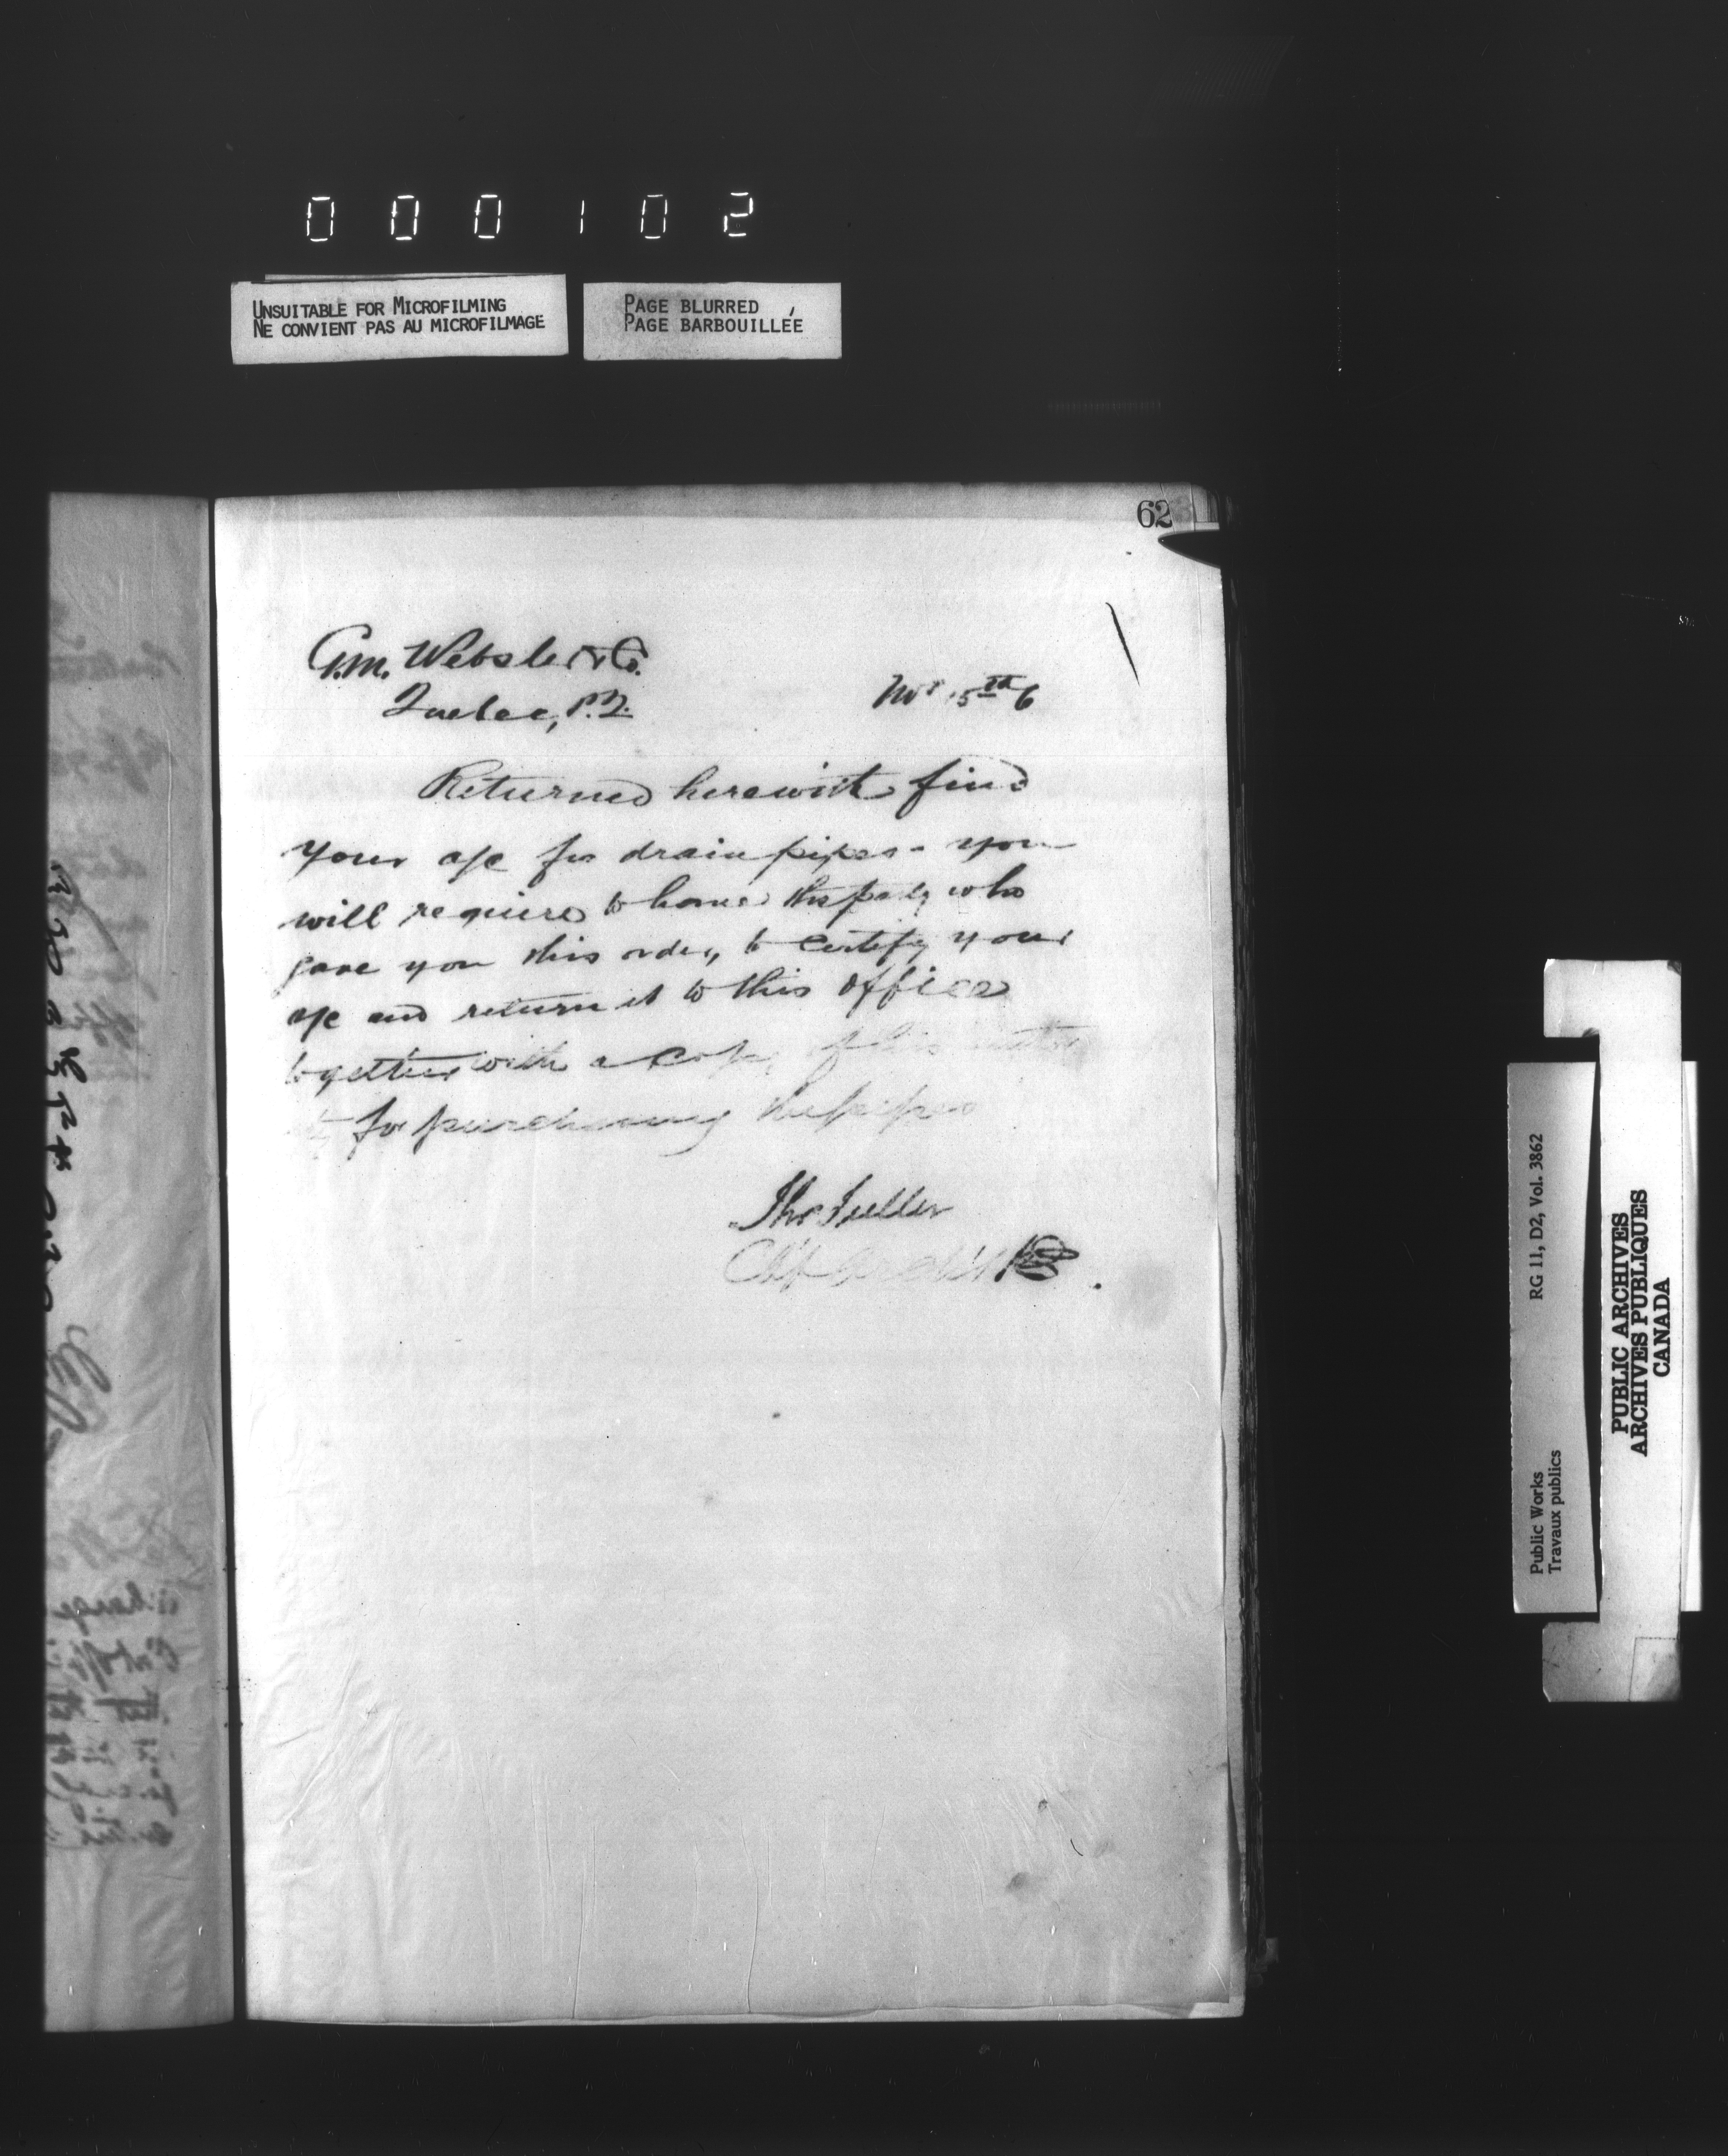 000102
UNSUITABLE FOR MICROFILMING
NE CONVIENT PAS AU MICROFILMAGE
PAGE BLURRED
PAGE BARBOUILLÉE
62
G.M. Webster & Co.
Quebec, P.Q.
Nov 15th 6
Returned herewith find
your a/c for drain pipes - you
will require to have the party who
gave you this order, to certify your
a/c and return it to this office
together with a copy of his
for purchasing the pipes
Thos Fuller
Ch'f Archt
RG 11, D2, Vol. 3862
Public Works
Travaux publics
PUBLIC ARCHIVES
ARCHIVES PUBLIQUES
CANADA